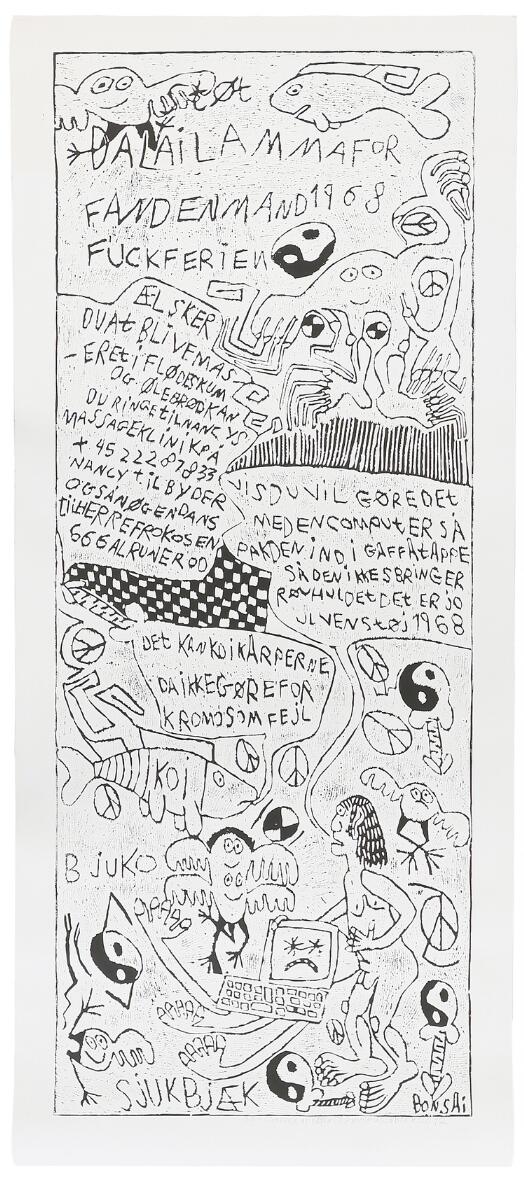 tØt
DALAiLAMMAFOR
FANDENMAND1968
FUCKFERIEN
ÆLSKER
DUAt BLIVEMAS
-EREtiFLØDESKUM
OG ØLEBRØDKAN
DURINGETILNANCYS
MASSAGEKLINIKPÅ
+ 45 22287833
NANCYtiLBYDER
OGSÅNØGENDANS
TILHERREFROKOSEN
666ALRUNERØD
VISDUVIL GØREDEt
MEDENCOMPUtERSÅ
PAKDENiNDiGAFFATAPPE
SÅDENIKKESBRINGER
RØVHULDEtDEtERJO
JLVENStØJ1968
DET KANKOiKARPERNE
DAIKKEGØREFOR
KROMOSOMFEJL
KOI
BJUKO
SJUKBJÆK
BONSAi